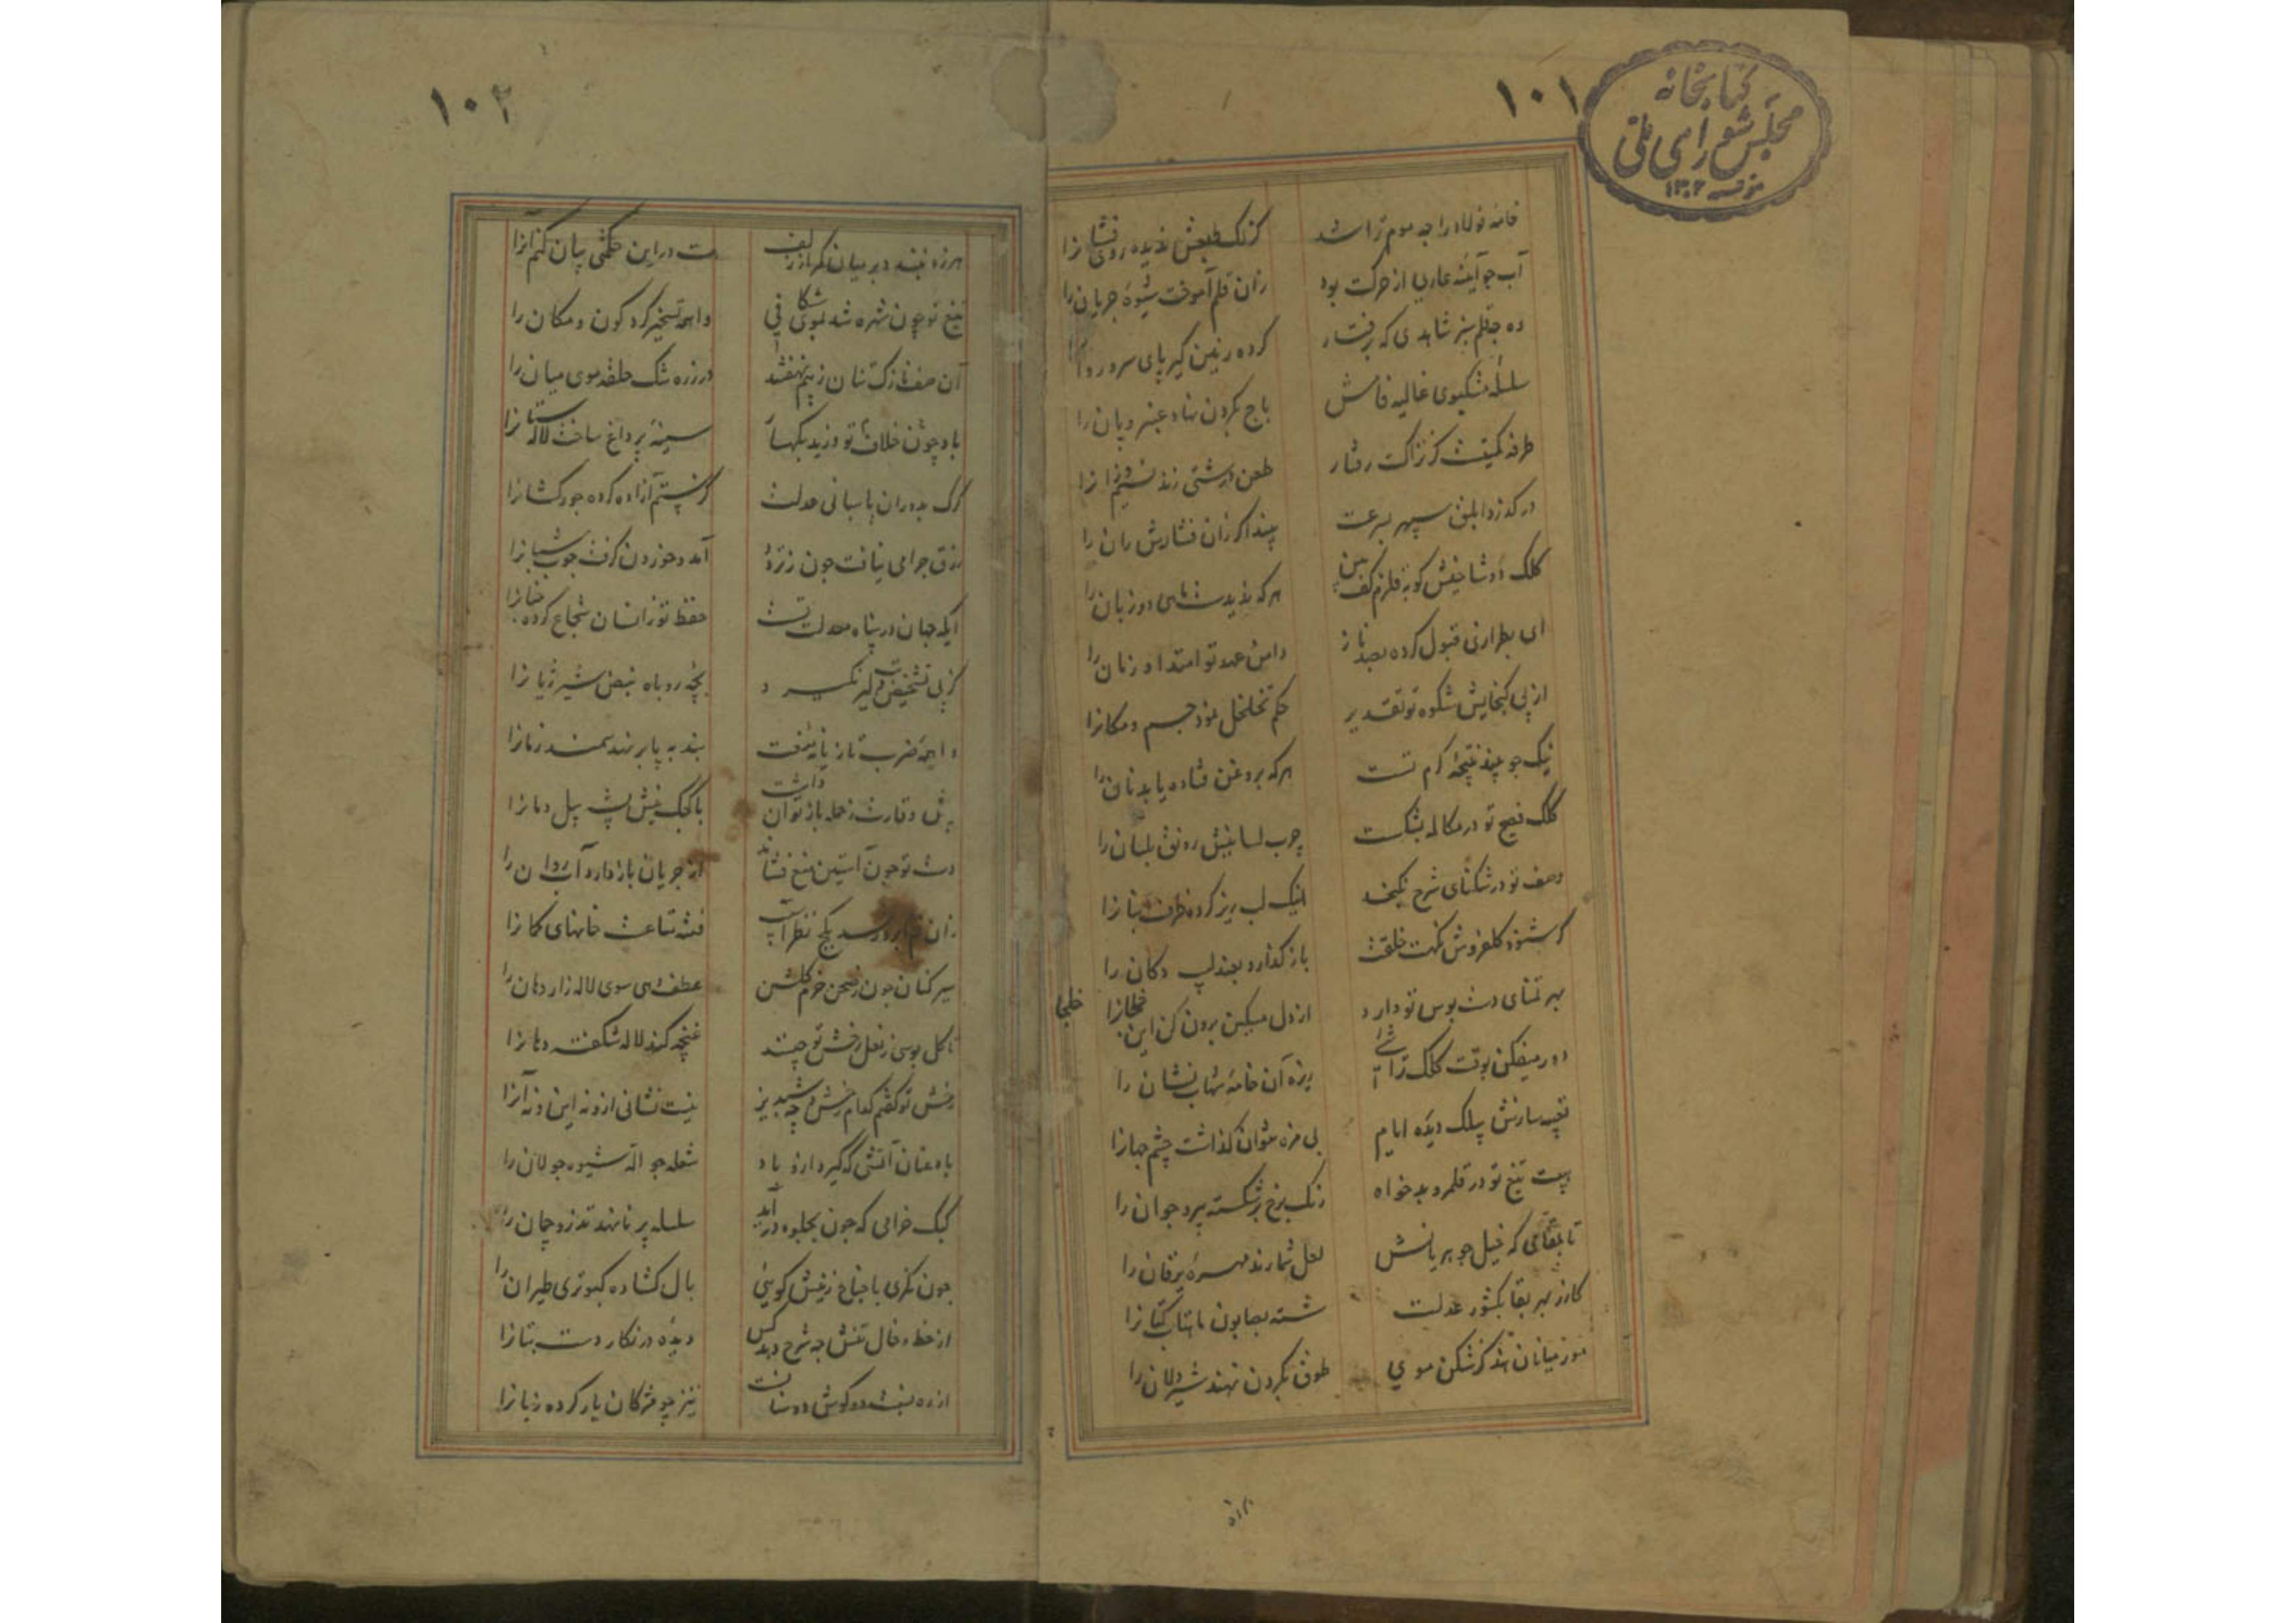 ۱۰۱
کتابخانه
مجلس شورای ملی
۱۳۰۲
خامه فولاد را چه موم تراشد
کزنک طبعش ندیده روی فشانرا
آب چو آینه عاری از حرکت بود
زان قلم آموخت شیوه جریان را
ده چه قلم سبز شاهدی که برفتار
کرده زمین کیر پای سرو روانرا
سلسله مشکبوی غالیه فامش
باج بکردن نهاد عنبر و بان را
طرفه کمیتیست کز نزاکت رفتار
طعن درشتی زند نسیم وزانرا
در کذرد ابلق سپهر بسرعت
کلک دو شاخیش کو به قلزم کف بین
هر که ندیدست ماهی دو زبان را
ای بطرازنی قبول کرده بصد ناز
دامن عهد تو امتداد زمان را
از پی کنجایش شکوه تو تقدیر
حکم تخلخل نمود جسم و مکانرا
نیک چو بیند نتیجه کرم تست
هر که بروغن فتاده یابد نان را
کلک فصیح تو در مکالمه بشکست
چرب لسانیش رونق لسان را
وصف تو در تنکنای شرح نکنجد
لیک لب ریز کرده ظرف بیانرا
کر شنود کلفروش نکهت خلقت
باز کذارد ببندد دکان را
بهر تمنای دست بوس تو دارد
از دل مسکین برون کن این خلجانرا
خلجا
دور میفکن بوقت کلک تراشی
ریزه آن خامه شهاب نشان را
تعبیه سازش پلک دیده ایام
بی مزه نتوان کذاشت چشم جهانرا
هیبت تیغ تو در قلمرو بدخواه
رنک برخ برشکسته پیر و جوان را
لعل شمارند مهره یرقان را
کازر بهر بقا بکشور عدلت
شسته بصابون ماهتاب کتانرا
مور میانان هند کز شکن موی
طوق بکردن نهند شیر دلان را
۱۰۲
هرزه نبندد دبر میان کمر از زلف
هست در این حکمتی بیان کنم آنرا
تیغ تو چون شهره شد بموی شکافی
واهمه تسخیر کرد کون و مکان را
در زره تنک حلقه موی میان را
باد چون خلاف تو وزید بکهسار
سینه پر داغ ساخت لاله ستانرا
کرک بدوران پاسبانی عدلت
کر ستم آزاده کرده جور کشانرا
رزق حرامی نیافت چون ز تردد
آمد و خوردن کرفت چوب شبانرا
ایکه جهان در پناه معدلت تست
حفظ تو ز انسان شجاع کرده جبانرا
کز پی تشخیص تب دلیر نکیرد
بچه روباه نبض شیر ژیانرا
واهمه ضرب تازیانه نهفتت
بند به پا بر نهد سمند زمانرا
پیش وقارت ز حمله باز توان داشت
با کجک نیش پشه پیل دمانرا
دست تو چون آستین منع فشاند
از جریان باز دارد آب روان را
فتنه خانهای کمانرا
سیر کنان چون ز صحن خرم کلشن
عطف دهی سوی لاله زار دهان را
تا کل بوسی ز نعل رخش تو چیند
غنچه کند لاله شکفته دهانرا
رخش تو کفتم کدام رخش و چه شبدیز
نیست نشانی از ونه این و نه آنرا
باد عنان آتشی که کیرد ازو یاد
شعله جواله شیوه جولان را
کبک خرامی که چون بجلوه در آید
سلسله بر پا نهد تذرو چمان را
چون نکری با جناح زینش کوئی
بال کشاده کبوتری طیران را
از خط و خال تنش چه شرح دهد کس
دیده در نکار دست بتانرا
تیز چو مژکان یار کرده زبانرا